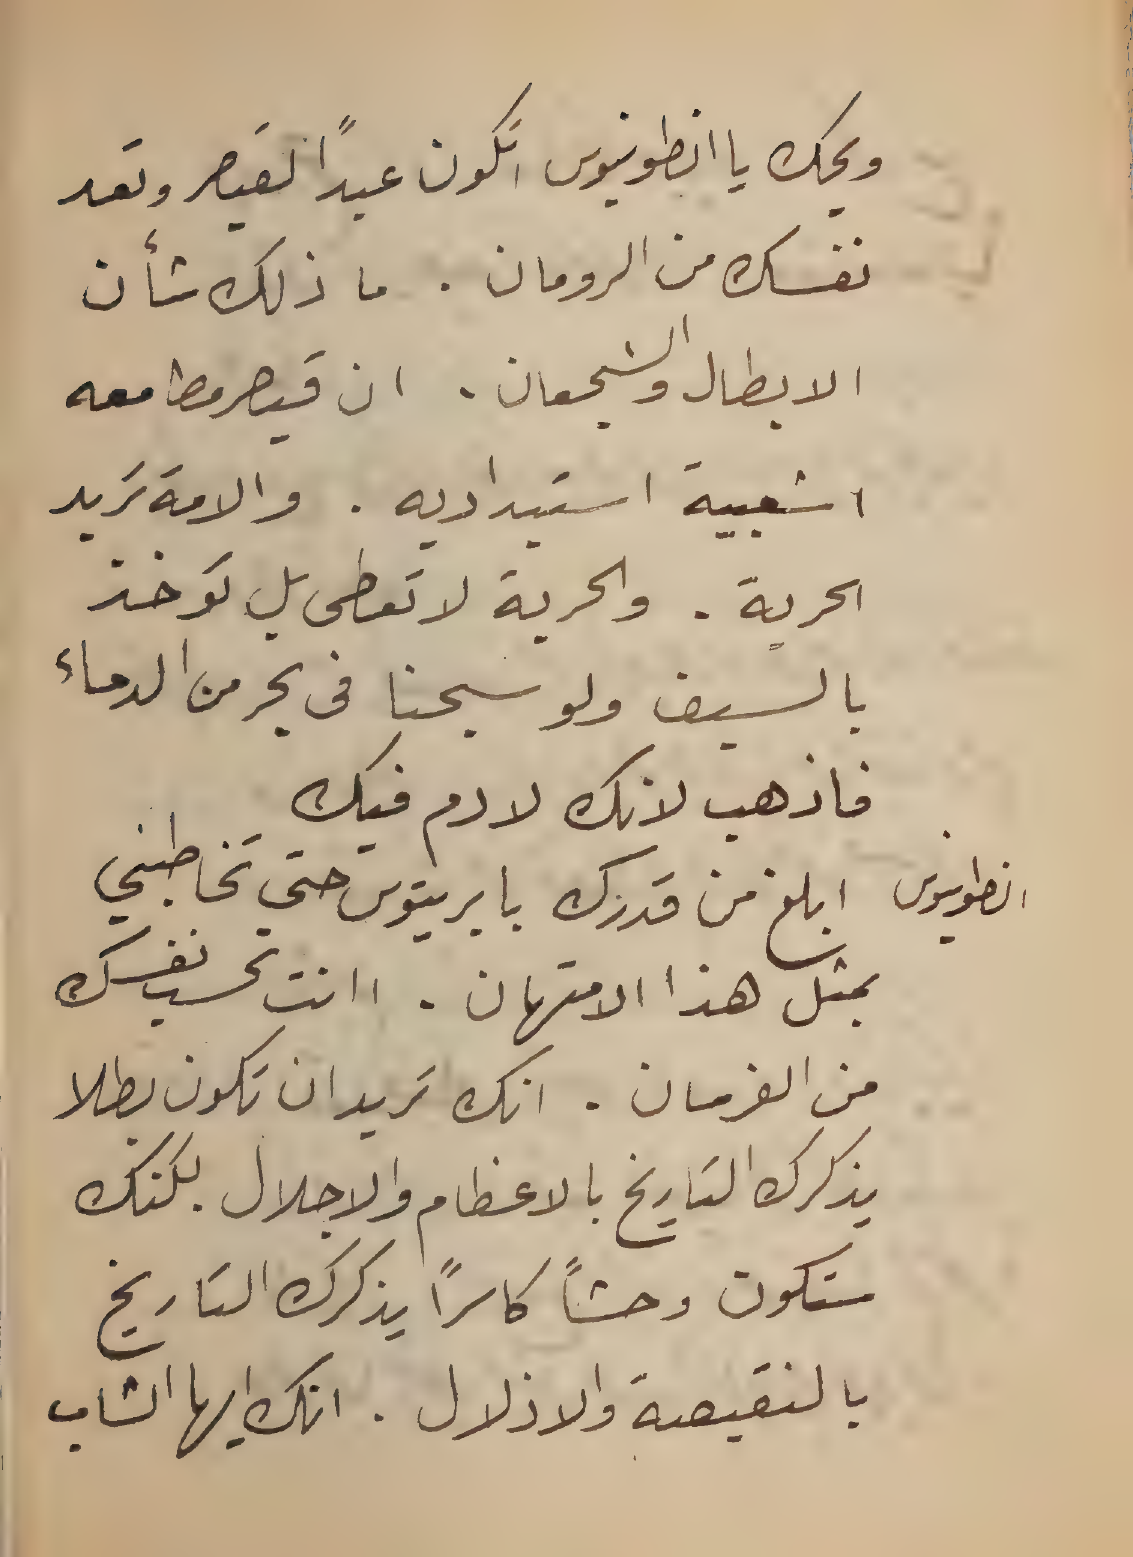 ويحك يا انطونيوس اتكون عبداً لقيصر وتعد
نفسك من الرومان . ما ذلك شأن
الابطال والشجعان . ان قيصر مطامعه
اشعبية استبداديه . والامة تريد
الحرية . والحرية لا تعطى بل تؤخذ
بالسيف ولو سبحنا فى بحر من الدماء
فاذهب لانك لا دم فيك
انطونيوس ابلغ من قدرك يا بريتوس حتى تخاطبني
بمثل هذا الامتهان . اانت تحسب نفسك
من الفرسان . انك تريد ان تكون بطلا
يذكرك التاريخ بالاعظام والاجلال . لكنك
ستكون وحشاً كاسراً يذكرك التاريخ
بالنقيصة والاذلال . انك ايها الشاب